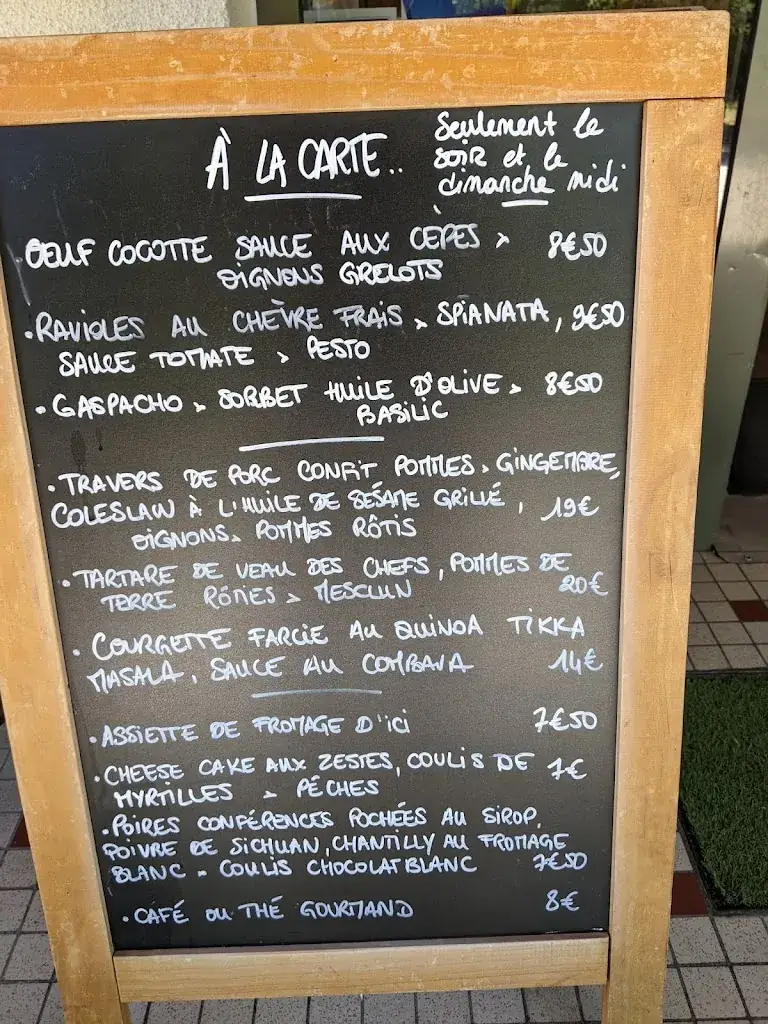 À LA CARTE..
Seulement le
soir et le
dimanche midi
OEUF COCOTTE SAUCE AUX CÈPES > 8€50
OIGNONS GRELOTS
• RAVIOLES AU CHÈVRE FRAIS > SPIANATA, 9€50
SAUCE TOMATE > PESTO
• GASPACHO > SORBET HUILE D'OLIVE > 8€50
BASILIC
• TRAVERS DE PORC CONFIT POMMES > GINGEMBRE,
COLESLAW À L'HUILE DE SÉSAME GRILLÉ, 19€
OIGNONS > POMMES RÔTIS
• TARTARE DE VEAU DES CHEFS, POMMES DE
TERRE RÔTIES > MESCLUN 20€
• COURGETTE FARCIE AU QUINOA TIKKA
MASALA, SAUCE AU COMBAVA 14€
• ASSIETTE DE FROMAGE D'ICI 7€50
• CHEESE CAKE AUX ZESTES, COULIS DE 7€
MYRTILLES > PÉCHES
• POIRES CONFÉRENCES POCHÉES AU SIROP,
POIVRE DE SICHUAN, CHANTILLY AU FROMAGE
BLANC > COULIS CHOCOLAT BLANC 7€50
• CAFÉ OU THÉ GOURMAND 8€